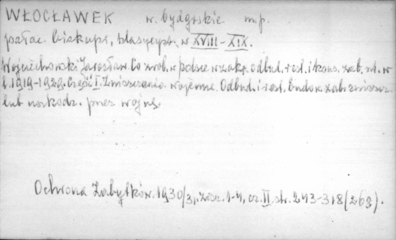 WŁOCŁAWEK w. bydgoskie m.p.
pałac biskupi, klasycyst. w XVIII-XIX.
Wojciechowski Jarosław Co zrob. w Polsce w zakr. odbud. rest. i kons. zab. w
l. 1919-1929. Część I. Zniszczenia wojenne. Odbud. i rest. budow. zab. zniszcz.
lub uszkodz. przez wojnę.
Ochrona Zabytków. 1930/31, zesz. 1-4, cz. II. str. 243-318 (263).